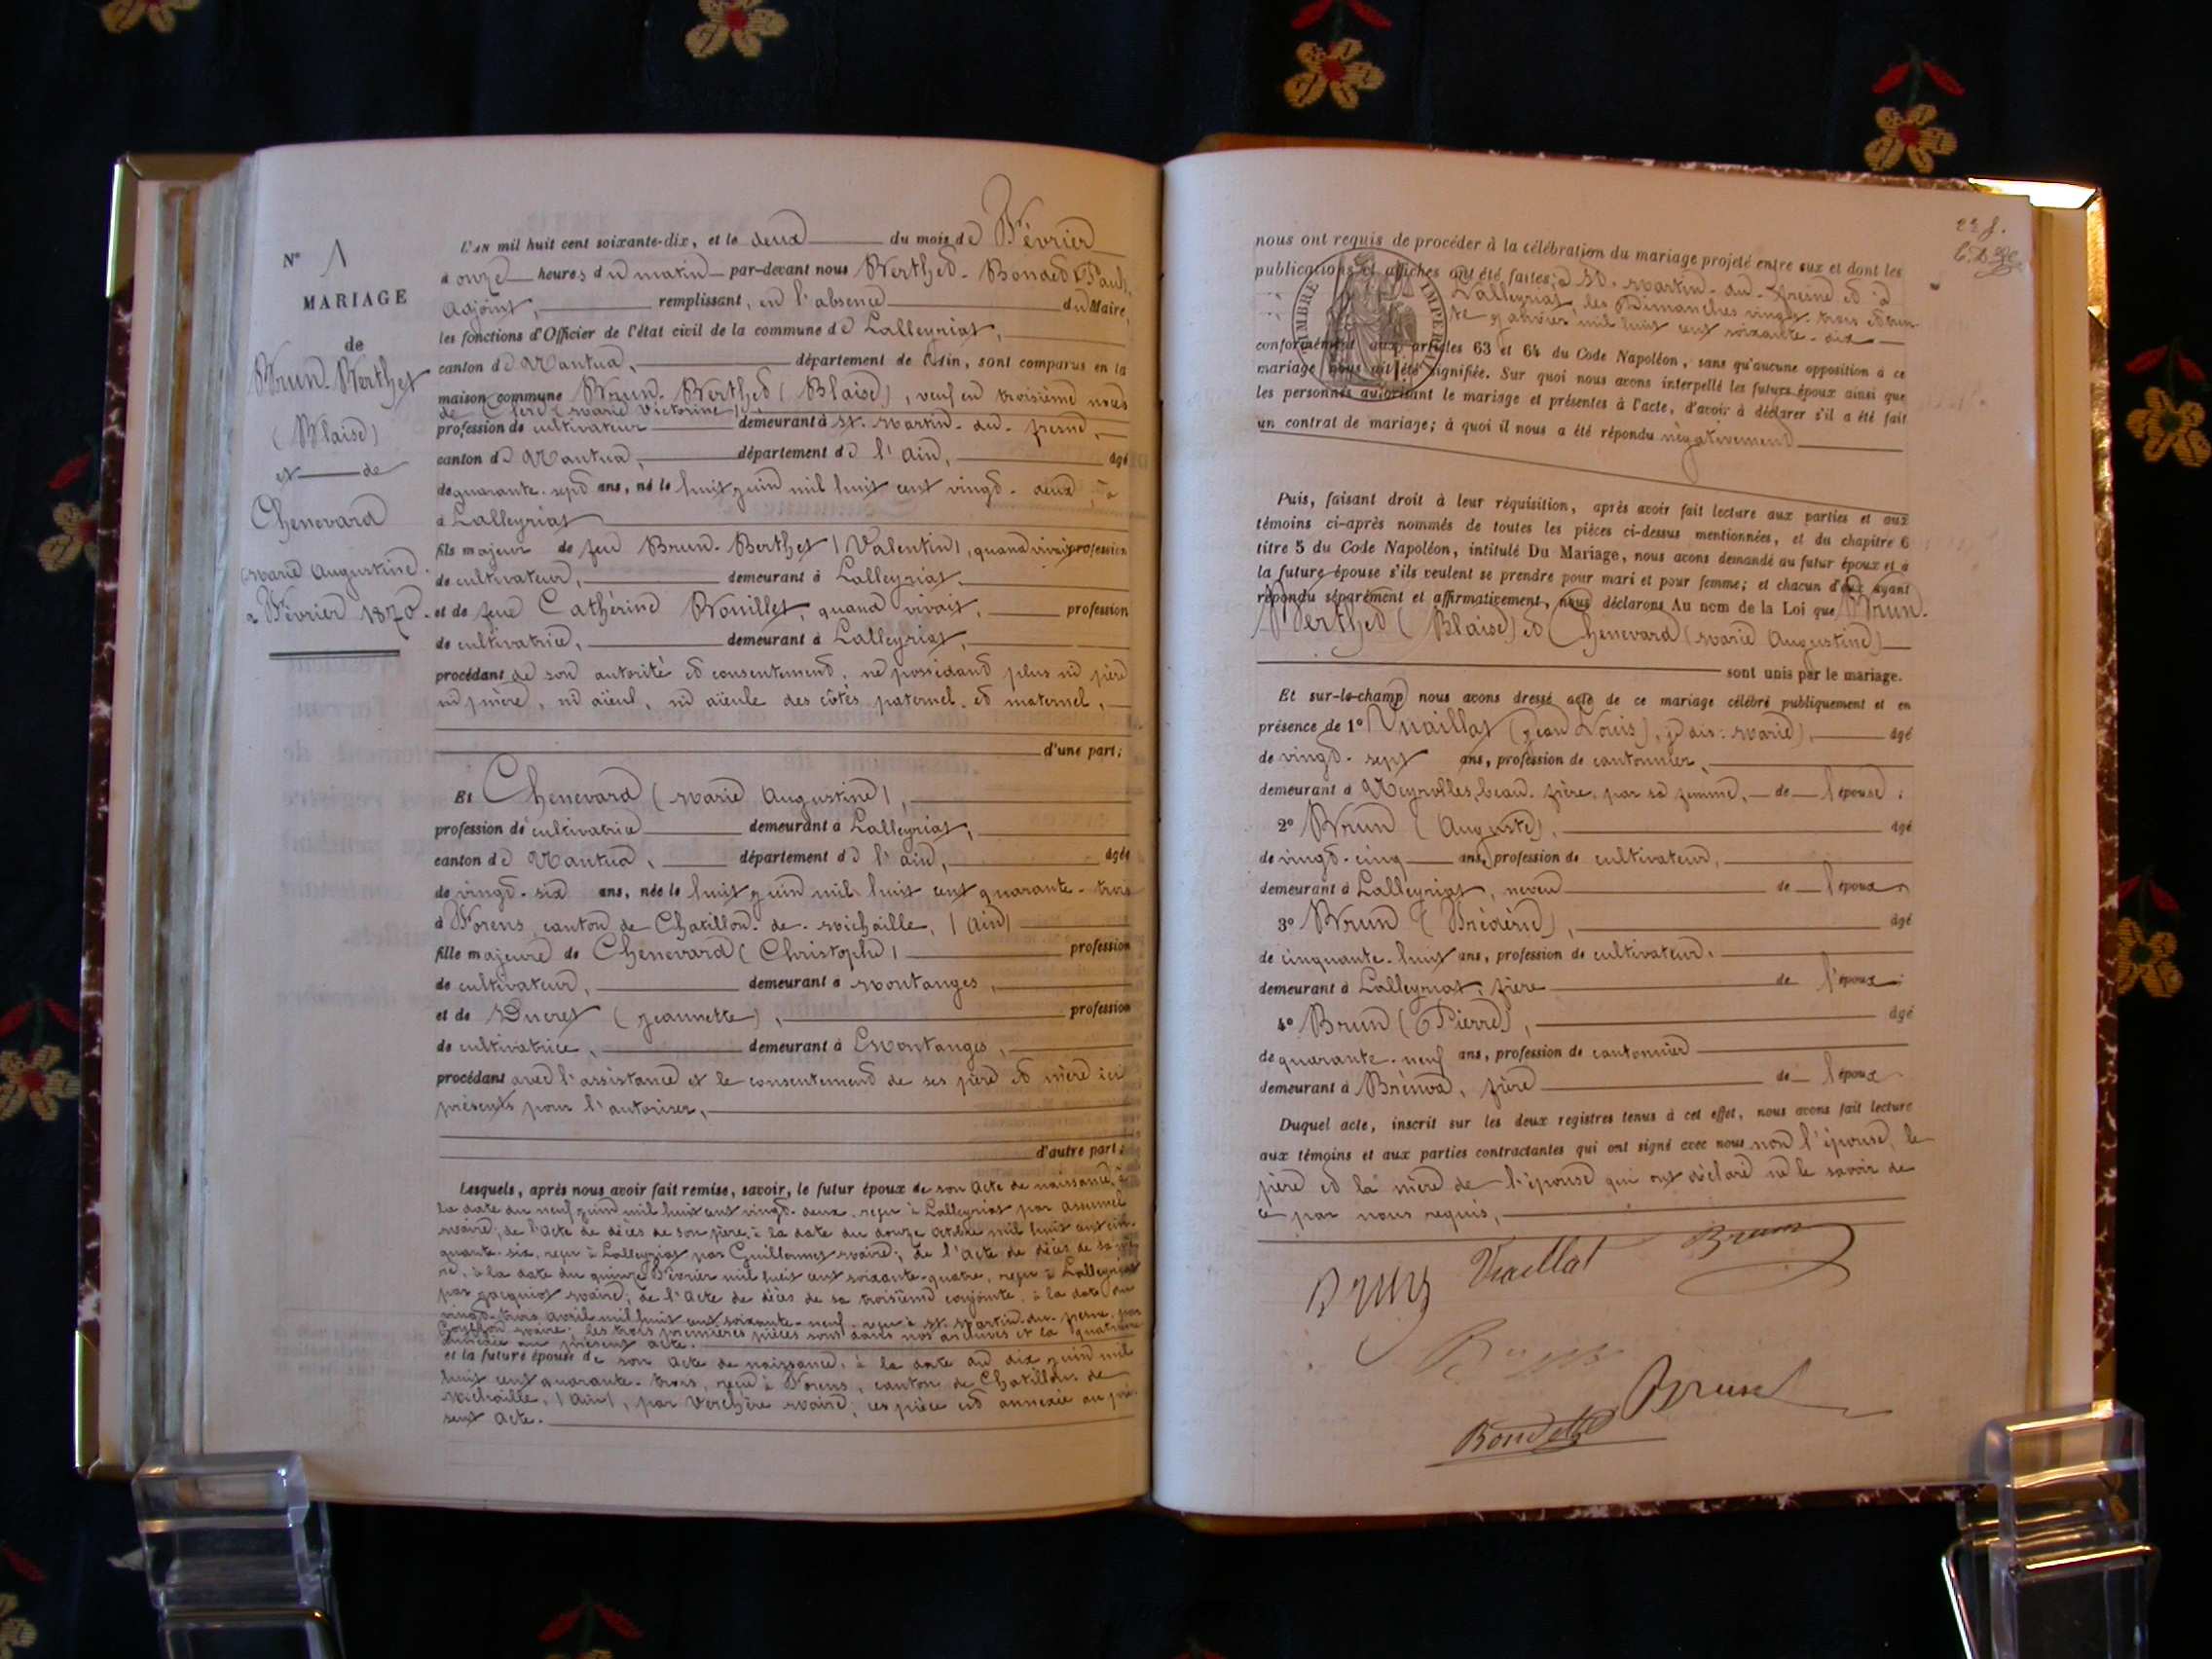 N° 1
MARIAGE
de
Brun-Berthet
(Blaise)
et de
Chenevard
(Marie Augustine)
2 Février 1870.
L'AN mil huit cent soixante-dix, et le deux du mois de Février
à onze heures du matin par-devant nous Berthet-Bondet Paul,
Adjoint, remplissant, en l'absence du Maire,
les fonctions d'Officier de l'état civil de la commune de Lalleyriat,
canton de Nantua, département de l'Ain, sont comparus en la
maison commune Brun-Berthet (Blaise), veuf en troisième noces
de (Marie Victorine)
profession de cultivateur demeurant à St. Martin-du-fresne,
canton de Nantua, département de l'Ain, âgé
de quarante-sept ans, né le huit juin mil huit cent vingt-deux, à
à Lalleyriat
fils majeur de feu Brun-Berthet (Valentin), quand vivait profession
de cultivateur, demeurant à Lalleyriat,
et de feue Cathérine Brouillet, quand vivait, profession
de cultivatrice, demeurant à Lalleyriat,
procédant de son autorité et consentement, ne possédant plus ni père
ni mère, ni aïeul, ni aïeule des côtés paternel et maternel,
d'une part;
Et Chenevard (Marie Augustine),
profession de cultivatrice demeurant à Lalleyriat,
canton de Nantua, département de l'ain, âgée
de vingt-six ans, née le huit juin mil huit cent quarante-trois
à Forens, canton de Chatillon-de-Michaille, (Ain)
fille majeure de Chenevard (Christophe) profession
de cultivateur, demeurant à Montanges,
et de Ducret (Jeannette), profession
de cultivatrice, demeurant à Montanges,
procédant avec l'assistance et le consentement de ses père et mère ici
présents pour l'autoriser,
d'autre part;
Lesquels, après nous avoir fait remise, savoir, le futur époux de son Acte de naissance, à
la date du neuf juin mil huit cent vingt-deux, reçu à Lalleyriat par Assumel
Maire; de l'Acte de décès de son père, à la date du douze Octobre mil huit cent cin-
quante-six, reçu à Lalleyriat par Guillermet Maire; de l'Acte de décès de sa mè-
re, à la date du quinze Février mil huit cent soixante-quatre, reçu à Lalleyriat
par Jacquiot Maire; de l'Acte de décès de sa troisième conjointe, à la date du
vingt-trois Avril mil huit cent soixante-neuf, reçu à St. Martin-du-fresne, par
maire; les trois premières pièces sont dans nos archives et la quatrième
annexée au présent acte.
et la future épouse de son Acte de naissance, à la date du dix juin mil
huit cent quarante-trois, reçu à Forens, canton de Chatillon-de-
Michaille, (Ain), par Verchère Maire; ces pièce est annexée au pré-
sent Acte.
nous ont requis de procéder à la célébration du mariage projeté entre eux et dont les
publications et affiches ont été faites, à St. Martin-du-fresne et à
Lalleyriat, les Dimanches vingt-trois et tren-
te janvier mil huit cent soixante-dix
TIMBRE IMPERIAL
conformément aux articles 63 et 64 du Code Napoléon, sans qu'aucune opposition à ce
mariage nous ait été signifiée. Sur quoi nous avons interpellé les futurs époux ainsi que
les personnes autorisant le mariage et présentes à l'acte, d'avoir à déclarer s'il a été fait
un contrat de mariage; à quoi il nous a été répondu négativement
Puis, faisant droit à leur réquisition, après avoir fait lecture aux parties et aux
témoins ci-après nommés de toutes les pièces ci-dessus mentionnées, et du chapitre 6
titre 5 du Code Napoléon, intitulé Du Mariage, nous avons demandé au futur époux et à
la future épouse s'ils veulent se prendre pour mari et pour femme; et chacun d'eux ayant
répondu séparément et affirmativement, nous déclarons Au nom de la Loi que Brun-
Berthet (Blaise) et Chenevard (Marie Augustine)
sont unis par le mariage.
Et sur-le-champ nous avons dressé acte de ce mariage célébré publiquement et en
présence de 1° Vuaillat (Jean Louis), âgé
de vingt-sept ans, profession de cantonnier,
demeurant à Neyrolles, beau-frère, par sa femme, de l'épouse;
2° Brun (Auguste), âgé
de vingt-cinq ans, profession de cultivateur,
demeurant à Lalleyriat, neveu de l'époux
3° Brun (Frédéric), âgé
de cinquante-huit ans, profession de cultivateur,
demeurant à Lalleyriat, frère de l'époux;
4° Brun (Pierre), âgé
de quarante-neuf ans, profession de cantonnier
demeurant à Brénod, frère de l'époux
Duquel acte, inscrit sur les deux registres tenus à cet effet, nous avons fait lecture
aux témoins et aux parties contractantes qui ont signé avec nous non l'épouse, le
père et la mère de l'épouse qui ont déclaré ne le savoir de
ce par nous requis,
Brun Vuaillat Brun
Brun
Bondet